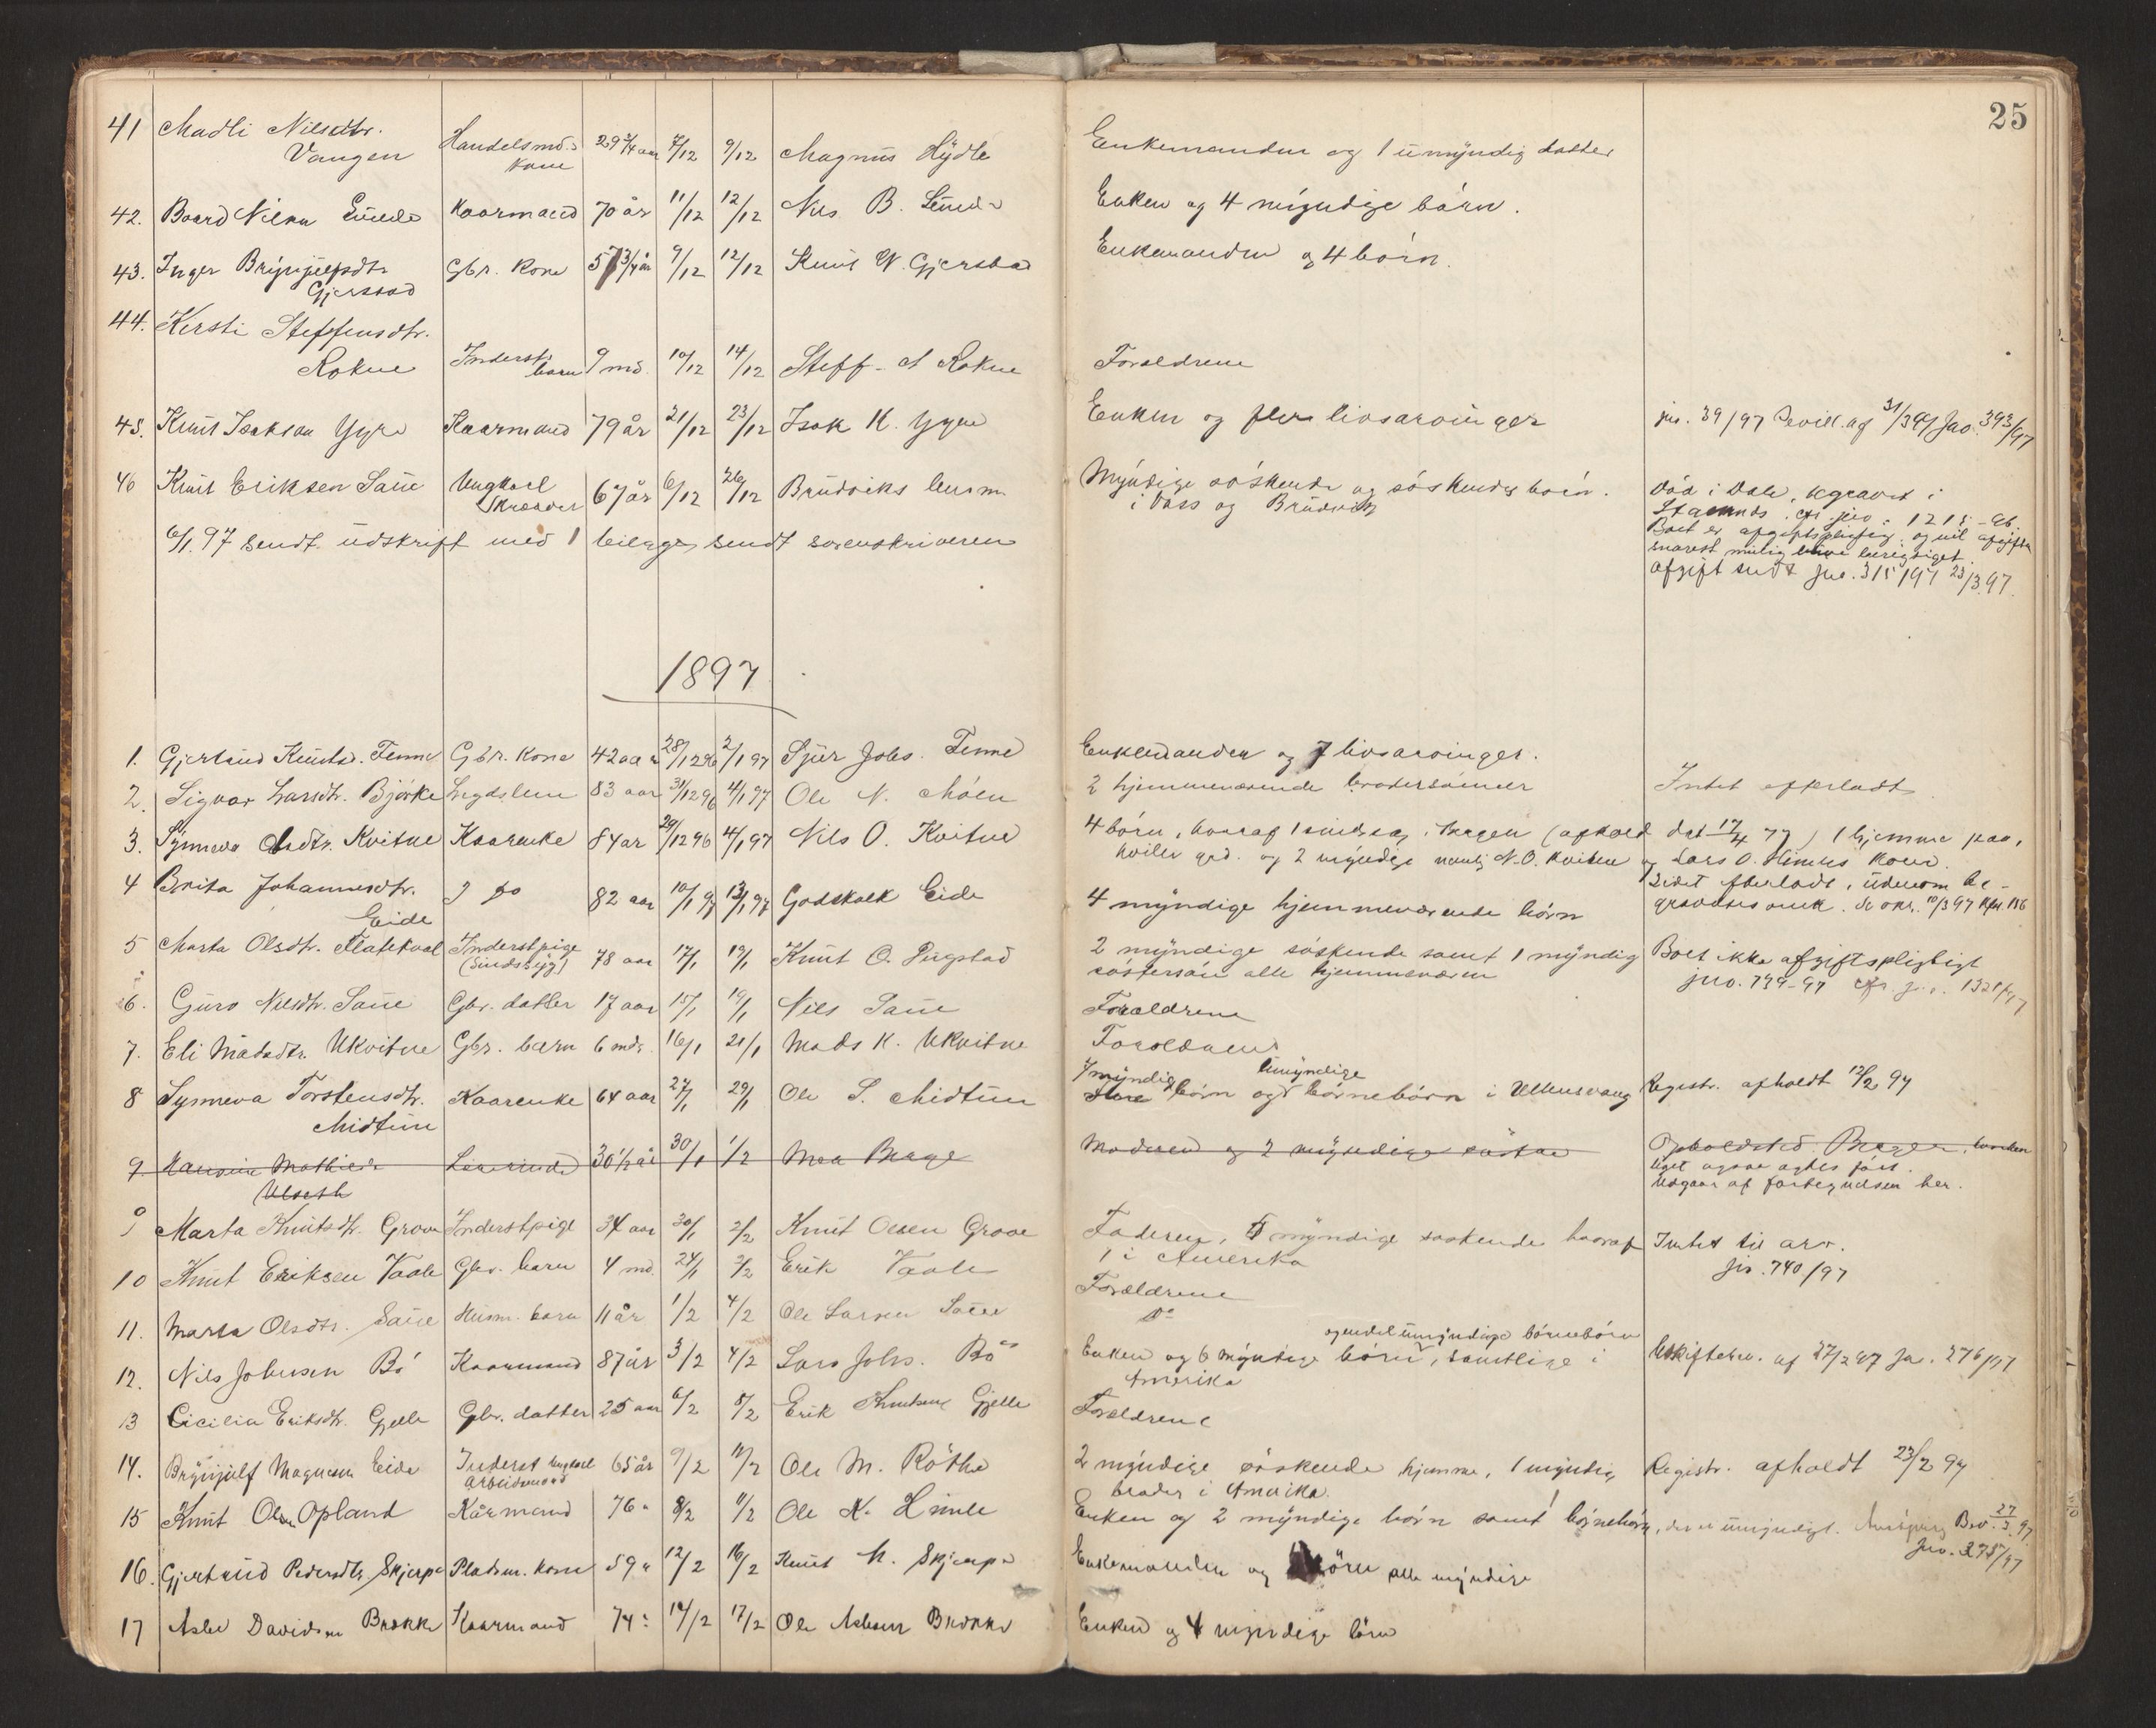 25
41 Madli Nilsdtr. Vangen Handelsmds kone 29 3/4 aar 7/12 9/12 Magnus Hydle Enkemanden og 1 umyndig datter
42. Baard Nilsen Kaarmand 70 år 11/12 12/12 Nils B. Enken og 4 myndige børn.
43. Inger Brynjulfsdtr Gjerstad Gbr. kone 57 3/4 år 9/12 12/12 Knut N. Gjerstad Enkemanden og 4 børn.
44. Kersti Steffensdtr. Rokne Inderst. barn 9 md. 10/12 14/12 Steff. Rokne Forældrene
45. Knut Isakson Ygre Kaarmand 79 år 21/12 23/12 Isak K. Ygre Enken og flere livsarvinger jno. 39/97 393/97
46 Knut Eriksen Saue Ungkarl Skrædder 67 år 6/12 26/12 Brudviks lensm. Myndige søskende og søskendes børn.
i Voss og Brudvik
Død i Dale, begravet i
Stamnes. cfr. jno. 1215 - 96.
Boet er afgiftspligtig og vil afgiften
snarest mulig blive berigtiget.
afgift sendt jno. 315/97 23/3.97.
6/1 97 sendt udskrift med 1 bilage sendt sorenskriveren
1897
1. Gjertrud Knutsd. Finne Gbr. kone 42 aar 28/12 96 2/1 97 Sjur Johs. Finne Enkemanden og 7 livsarvinger.
2. Sigvor Larsdtr. Bjørke Lægdslem 83 aar 31/12 96 4/1 97 Ole N. Møen 2 hjemmeværende brodersønner Intet efterladt
3. Synneva Olsdtr. Kvitne Kaarenke 84 ar 29/12 96 4/1 97 Nils O. Kvitne 4 børn, hvoraf 1 sindssyg i Bergen 1 hjemme paa
og 2 myndige nemlig N.O. Kvitne og Lars O. kone.
4 Brita Johannesdtr. Eide do 82 aar 10/1 97 13/1 97 Godskalk Eide 4 myndige hjemmeværende børn Intet efterladt, udenom be-
gravelsesomk.
5 Marta Olsdtr. Flatekval Inderstpige (sindssyg) 78 aar 17/1 19/1 Knut O. Rogstad 2 myndige søskende samt 1 myndig
søstersøn alle hjemmeværen
Boet ikke afgiftspligtigt
jno. 739-97 cfr. jno. 1321/97
6. Guro Nilsdtr. Saue Gbr. datter 17 aar 15/1 19/1 Nils Saue Forældrene
7. Eli Madsdtr. Ukvitne Gbr. barn 6 mdr. 16/1 21/1 Mads K. Ukvitne Forældrene
8 Synneva Torstensdtr. Midtun Kaarenke 64 aar 27/1 29/1 Ole S. Midtun 7 myndige børn og umyndige børnebørn i Ullensvang Registr. afholdt 12/2 97
9 Mathilde Lærerinde 30 1/2 år 30/1 1/2 Moa Berge Moderen og 2 myndige søstre Opholdsted Bergen, hvorhen
liget ogsaa agtes ført.
Udgaar af fortegnelsen her.
9 Marta Knutsdtr. Grove Inderstpige 34 aar 30/1 2/2 Knut Olsen Grove Faderen, 5 myndige søskende hvoraf
1 i Amerika
Intet til arv.
jno. 740/97
10 Knut Eriksen Vaale Gbr. barn 4 md. 24/1 3/2 Erik Vaale Forældrene
11. Marta Olsdtr. Saue Husm. barn 11 år 1/2 4/2 Ole Larsen Saue Do
12. Nils Johnsen Bø Kaarmand 87 år 3/2 4/2 Lars Johs. Bø Enken og 6 myndige børn og endel umyndige børnebørn, samtlige i
Amerika
Uskiftebev. af 27/2 97 Jno. 276/97
13 Cicilia Eriksdtr. Gjelle Gbr. datter 25 aar 6/2 8/2 Erik Knutsen Gjelle Forældrene
14. Brynjulf Magnesen Eide Inderst ungkarl arbeidsmand 65 år 9/2 11/2 Ole M. Røthe 2 myndige søskende hjemme, 1 myndig
broder i Amerika.
Registr. afholdt 23/2 97
15 Knut Olsen Opland Kårmand 76 " 8/2 11/2 Ole K. Himle Enken og 2 myndige børn samt 1 børnebørn, der er umyndigt. Bev. 27/3 97.
Jno. 375/97
16. Gjertrud Pedersdtr. Skjerpe Pladsm. kone 59 " 12/2 16/2 Knut M. Skjerpe Enkemanden og børn alle myndige
17 Asle Davidsen Brekke Kaarmand 74 " 14/2 17/2 Ole Aslesen Brekke Enken og 4 myndige børn